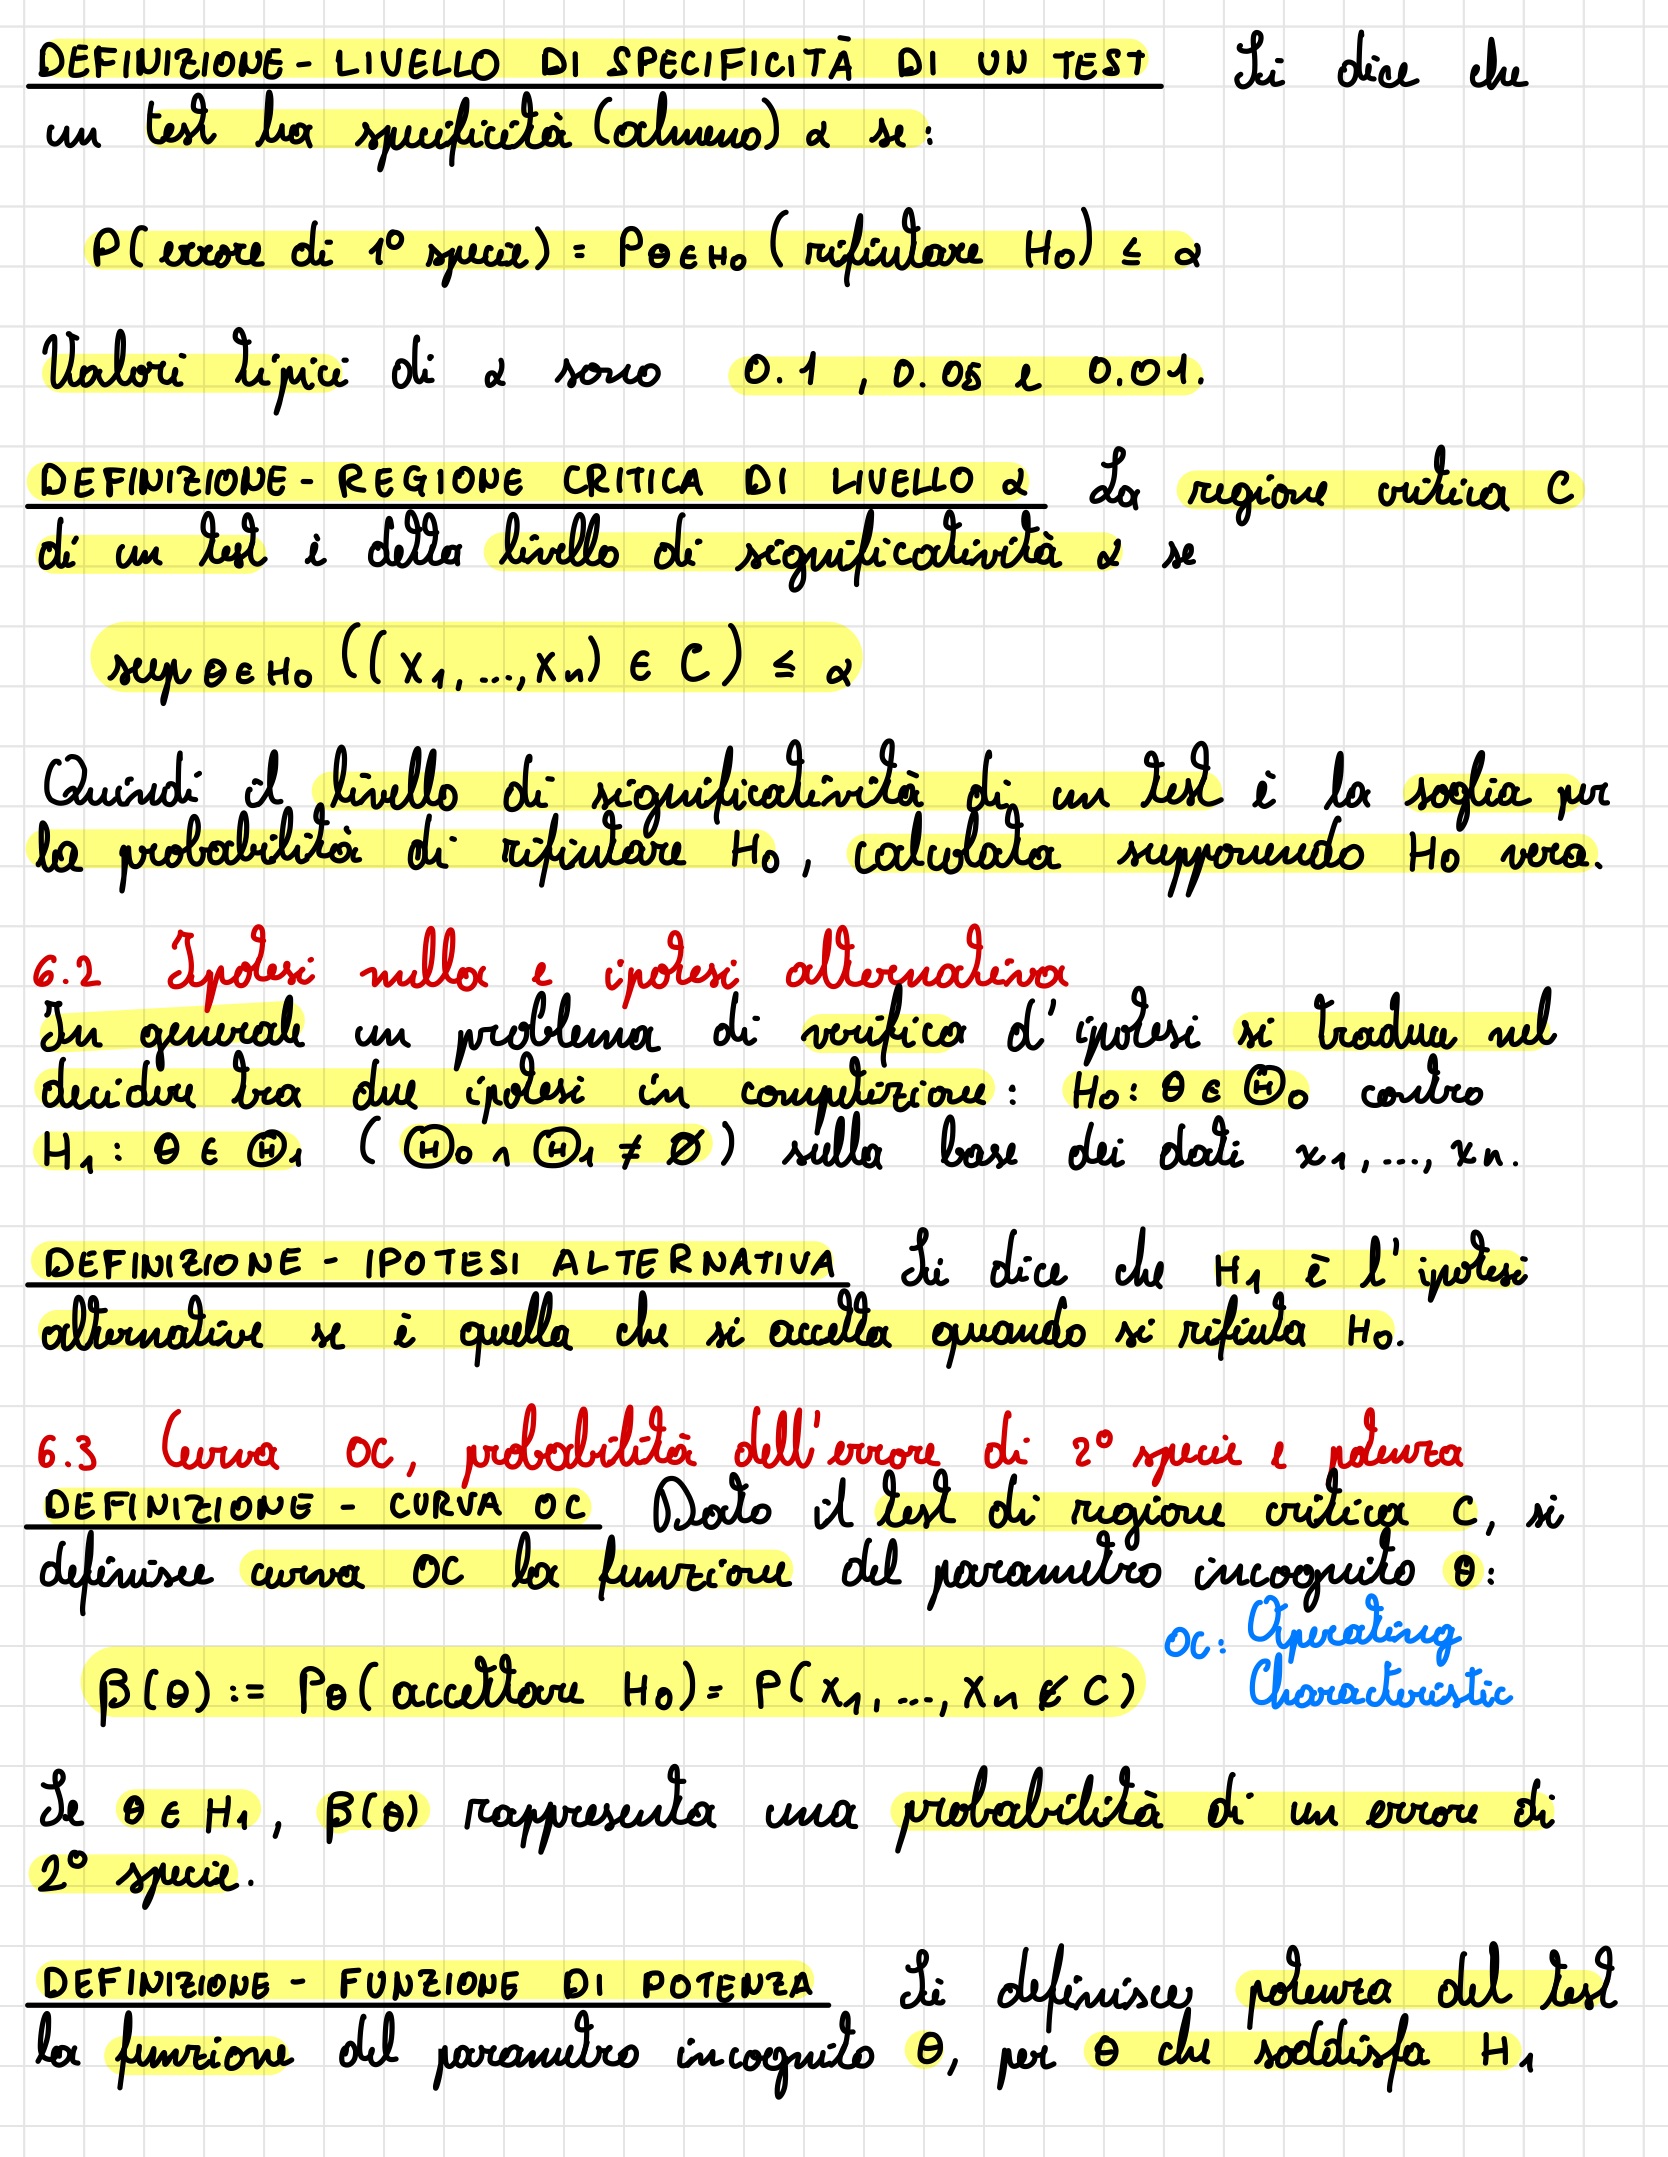 DEFINIZIONE - LIVELLO DI SPECIFICITÀ DI UN TEST Si dice che
un test ha specificità (almeno) α se:
P( errore di 1° specie) = P θ ∈ H0 ( rifiutare H0) ≤ α
Valori tipici di α sono 0.1 , 0.05 e 0.01.
DEFINIZIONE - REGIONE CRITICA DI LIVELLO α La regione critica C
di un test è detta livello di significatività α se
sup θ ∈ H0 ((X1, ..., Xn) ∈ C) ≤ α
Quindi il livello di significativività di un test è la soglia per
la probabilità di rifiutare H0, calcolata supponendo H0 vera.
6.2 Ipotesi nulla e ipotesi alternativa
In generale un problema di verifica d'ipotesi si traduce nel
decidere tra due ipotesi in competizione: H0: θ ∈ Θ0 contro
H1: θ ∈ Θ1 ( Θ0 ∩ Θ1 ≠ ∅) sulla base dei dati x1, ..., xn.
DEFINIZIONE - IPOTESI ALTERNATIVA Si dice che H1 è l'ipotesi
alternative se è quella che si accetta quando si rifiuta H0.
6.3 Curva OC, probabilità dell'errore di 2° specie e potenza
DEFINIZIONE - CURVA OC Dato il test di regione critica C, si
definisce curva OC la funzione del parametro incognito θ:
OC: Operating
Characteristic
β(θ) := Pθ( accettare H0) = P( X1, ..., Xn ∉ C)
Se θ ∈ H1, β(θ) rappresenta una probabilità di un errore di
2° specie.
DEFINIZIONE - FUNZIONE DI POTENZA Si definisce potenza del test
la funzione del parametro incognito θ, per θ che soddisfa H1